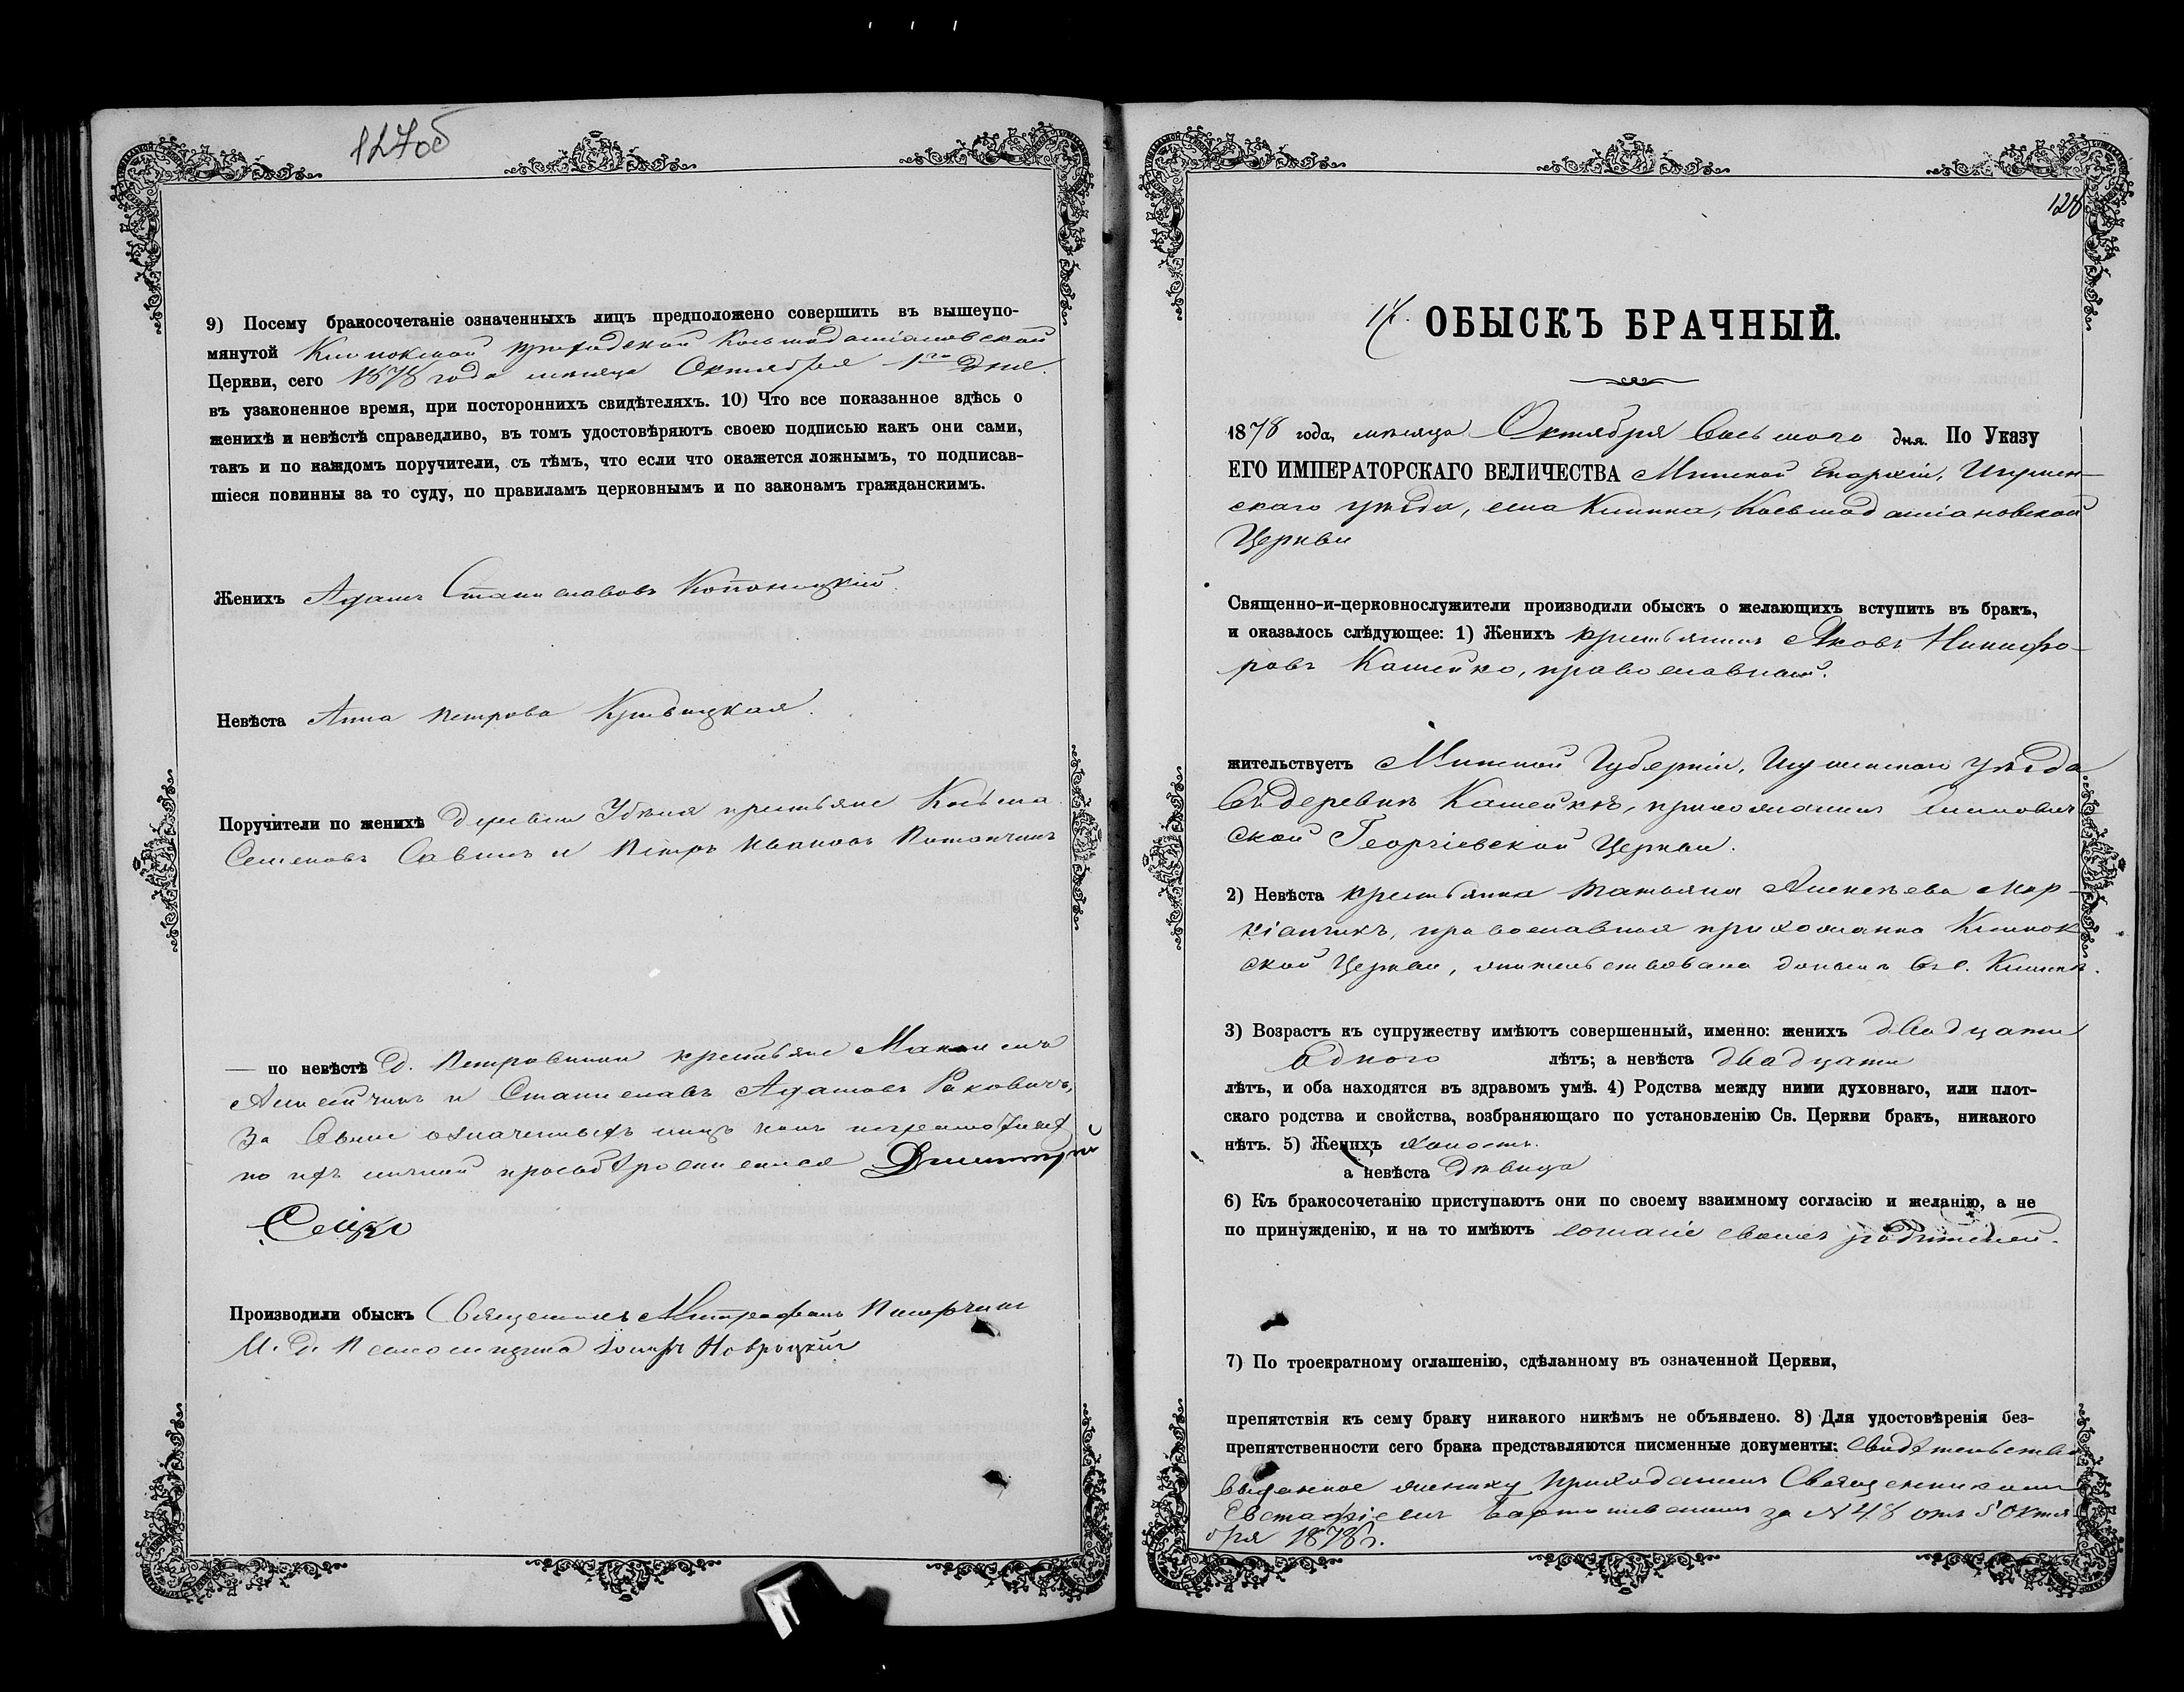 127об
9) Посему бракосочетаніе означенныхъ лицъ предположено совершить въ вышеупо-
мянутой Клинокской приходской Косьмодаміановской
Церкви, сего 1878 года мѣсяца Октября 1го дня.
въ узаконенное время, при постороннихъ свидѣтеляхъ. 10) Что все показанное здѣсь о
женихѣ и невѣстѣ справедливо, въ томъ удостовѣряютъ своею подписью какъ они сами,
такъ и по каждомъ поручители, съ тѣмъ, что если что окажется ложнымъ, то подписав-
шіеся повинны за то суду, по правиламъ церковнымъ и по законамъ гражданскимъ.
Женихъ Адамъ Станиславовъ
Невѣста Анна Петрова Кривицкая.
Поручители по женихѣ деревни Убѣля крестьяне Косьма
Семеновъ Савичъ и Петръ Ивановъ
— по невѣстѣ д. крестьяне
и Станиславъ Адамовъ Раковичъ,
За выше означенныхъ лицъ какъ неграмотныхъ
по ихъ личной просьбѣ росписался Дмитрій
Производили обыскъ Священникъ Митрофанъ
И. д. Псаломщика Іосифъ Новроцкій
128
14. ОБЫСКЪ БРАЧНЫЙ.
1878 года, мѣсяца Октября восьмого дня. По Указу
ЕГО ИМПЕРАТОРСКАГО ВЕЛИЧЕСТВА Минской Епархіи, Игумен-
скаго уѣзда, села Клинка, Косьмодаміановской
Церкви
Священно-и-церковнослужители производили обыскъ о желающихъ вступить въ бракъ,
и оказалось слѣдующее: 1) Женихъ крестьянинъ Яковъ Никифо-
ровъ Кошейко, православный.
жительствуетъ Минской Губерніи, Игуменскаго уѣзда
въ деревнѣ Кошейкѣ, прихожанинъ
ской Георгіевской Церкви.
2) Невѣста крестьянка Татьяна Алексѣева Мар-
кіанчикъ, православная прихожанка Клинок
ской Церкви, жительствовала донынѣ въ с. Клинкѣ.
3) Возрастъ къ супружеству имѣютъ совершенный, именно: женихъ двадцати
одного лѣтъ; а невѣста двадцати
лѣтъ, и оба находятся въ здравомъ умѣ. 4) Родства между ними духовнаго, или плот-
скаго родства и свойства, возбраняющаго по установленію Св. Церкви бракъ, никакого
нѣтъ. 5) Женихъ холостъ.
а невѣста дѣвица
6) Къ бракосочетанію приступаютъ они по своему взаимному согласію и желанію, а не
по принужденію, и на то имѣютъ согласіе своихъ родителей.
7) По троекратному оглашенію, сдѣланному въ означенной Церкви,
препятствія къ сему браку никакого никѣмъ не объявлено. 8) Для удостовѣренія без-
препятственности сего брака представляются писменные документы: Свидѣтельство
выданное жениху приходскимъ Священникомъ
Евстафіемъ за N 48 отъ 5 Октя
бря 1878 г.